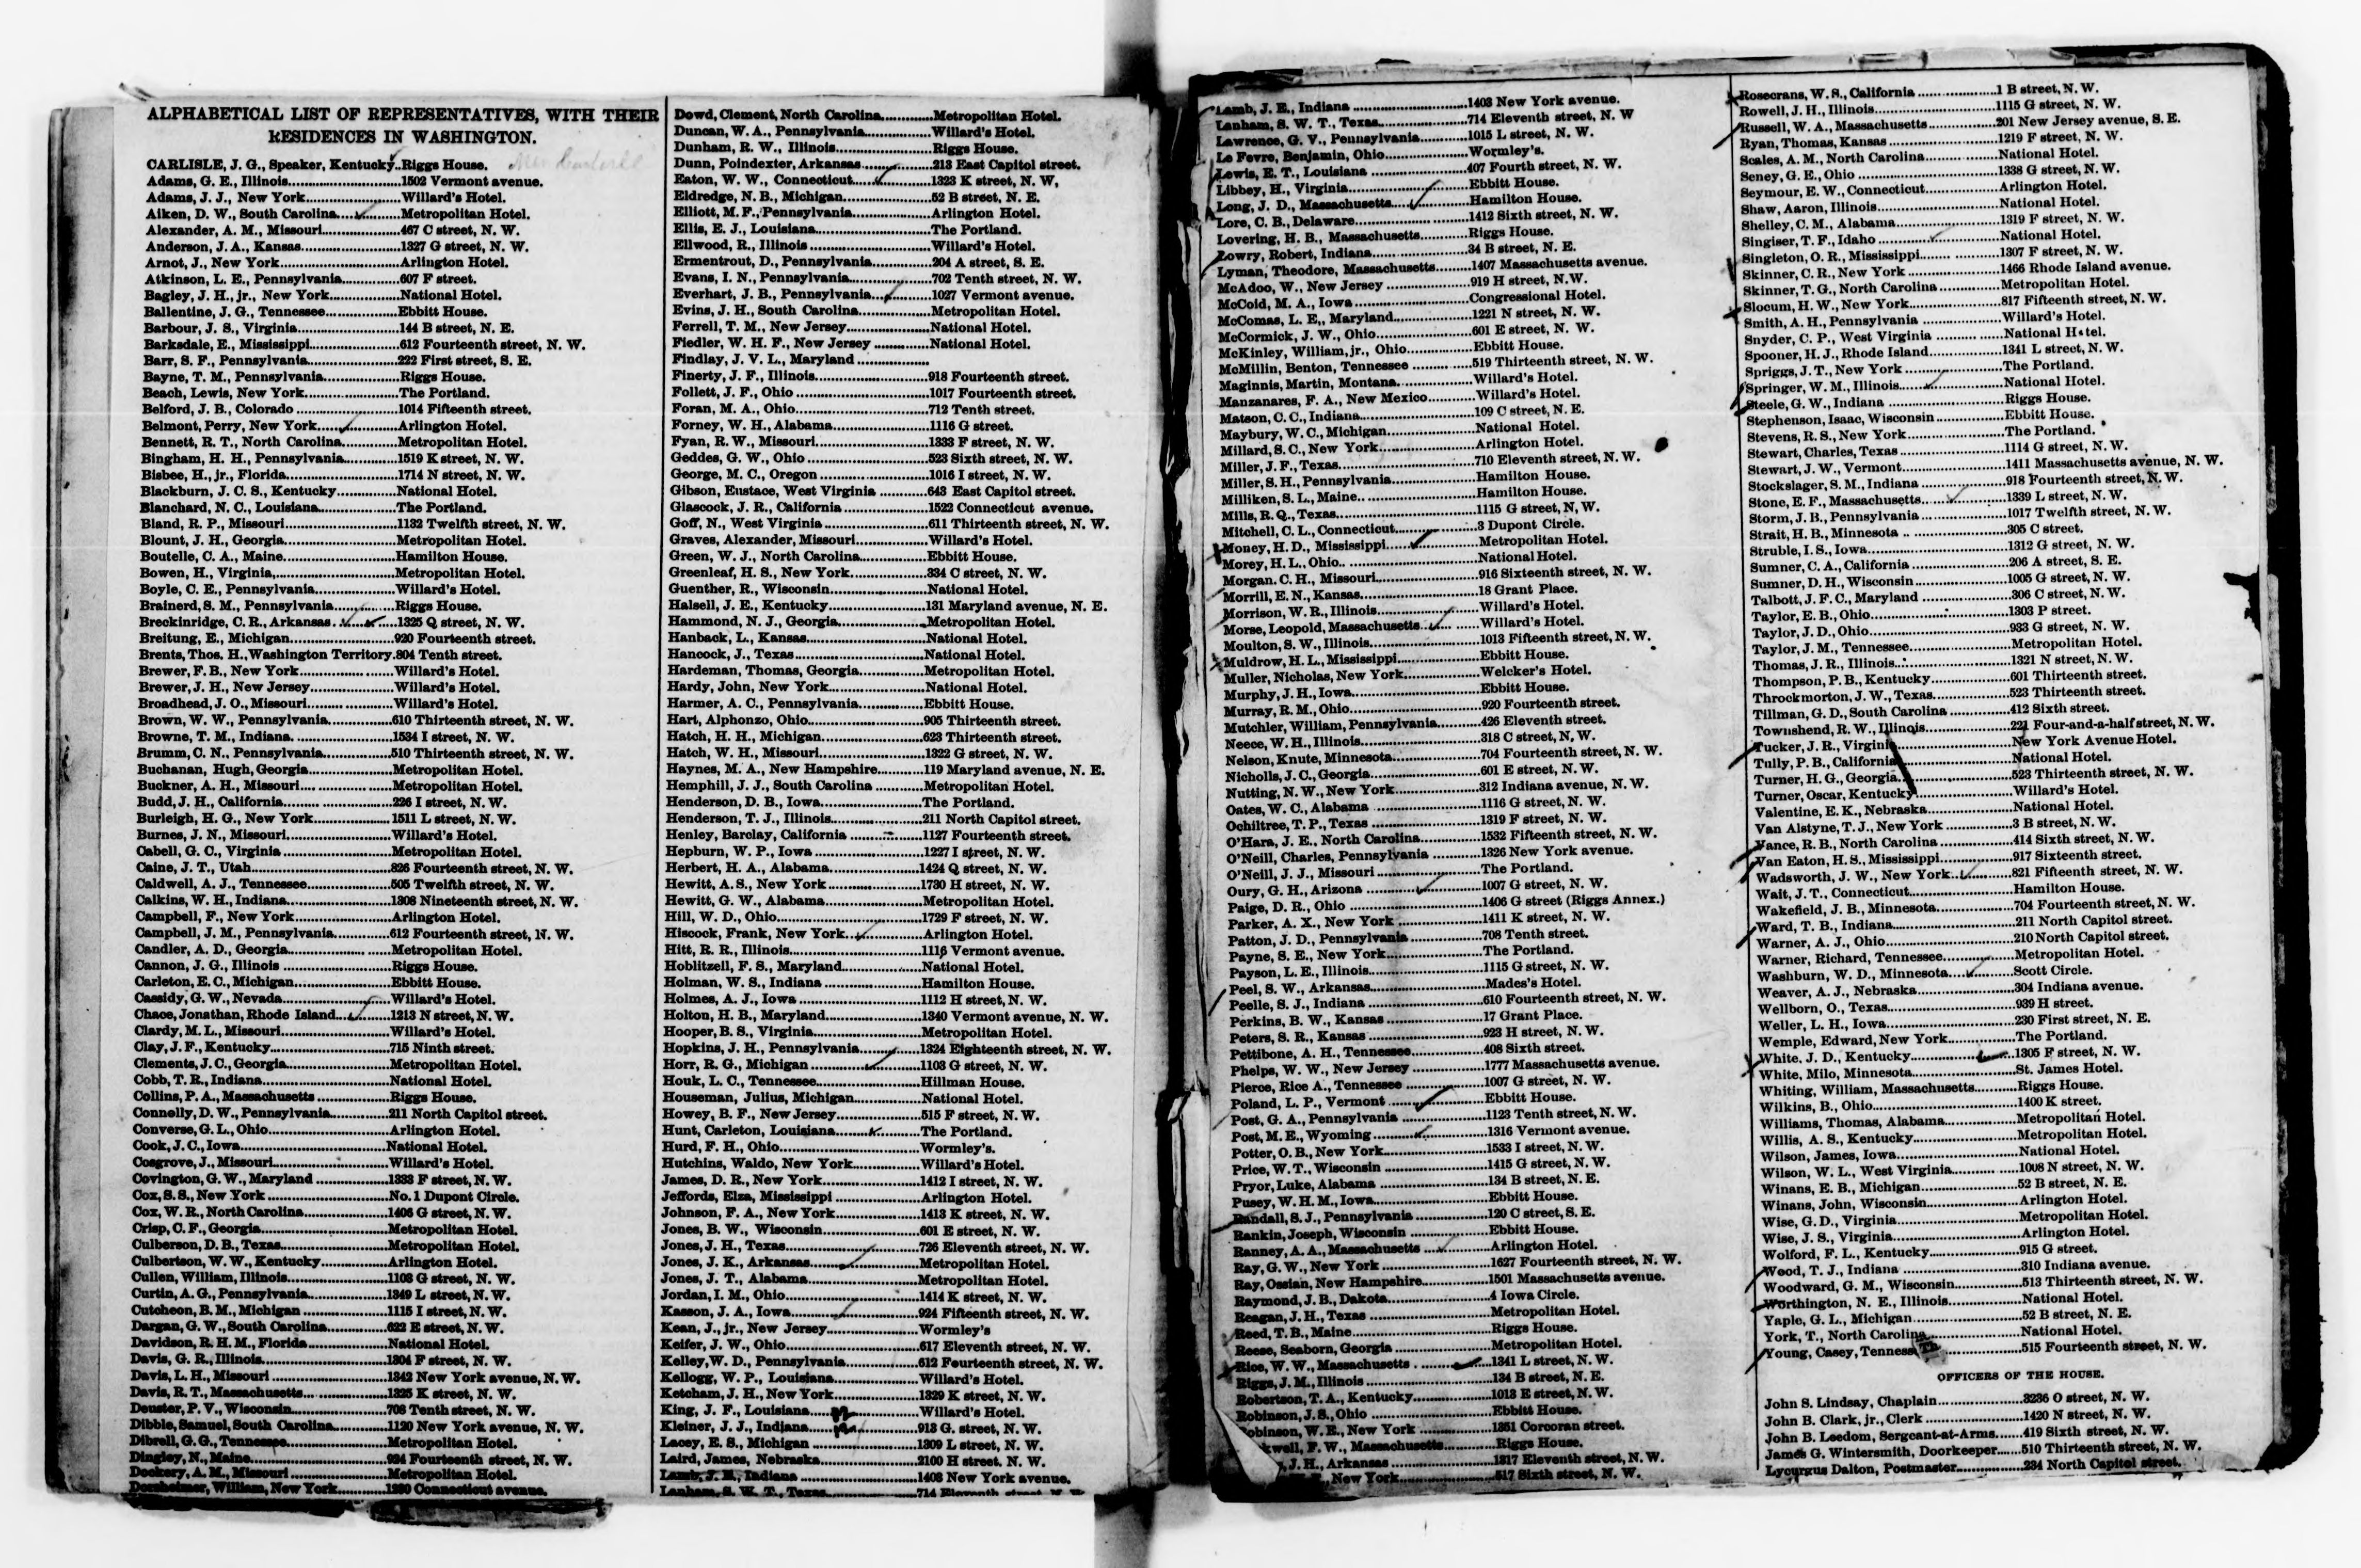 ALPHABETICAL LIST OF REPRESENTATIVES, WITH THEIR
RESIDENCES IN WASHINGTON.
CARLISLE, J. G., Speaker, Kentucky..Riggs House.
Adams, G. E., Illinois..........1502 Vermont avenue.
Adams, J. J., New York..........Willard's Hotel.
Aiken, D. W., South Carolina..........Metropolitan Hotel.
Alexander, A. M., Missouri..........467 C street, N. W.
Anderson, J. A., Kansas..........1327 G street, N. W.
Arnot, J., New York..........Arlington Hotel.
Atkinson, L. E., Pennsylvania..........607 F street.
Bagley, J. H., jr., New York..........National Hotel.
Ballentine, J. G., Tennessee..........Ebbitt House.
Barbour, J. S., Virginia..........144 B street, N. E.
Barksdale, E., Mississippi..........612 Fourteenth street, N. W.
Barr, S. F., Pennsylvania..........222 First street, S. E.
Bayne, T. M., Pennsylvania..........Riggs House.
Beach, Lewis, New York..........The Portland.
Belford, J. B., Colorado..........1014 Fifteenth street.
Belmont, Perry, New York..........Arlington Hotel.
Bennett, R. T., North Carolina..........Metropolitan Hotel.
Bingham, H. H., Pennsylvania..........1519 K street, N. W.
Bisbee, H., jr., Florida..........1714 N street, N. W.
Blackburn, J. C. S., Kentucky..........National Hotel.
Blanchard, N. C., Louisiana..........The Portland.
Bland, R. P., Missouri..........1132 Twelfth street, N. W.
Blount, J. H., Georgia..........Metropolitan Hotel.
Boutelle, C. A., Maine..........Hamilton House.
Bowen, H., Virginia,..........Metropolitan Hotel.
Boyle, C. E., Pennsylvania..........Willard's Hotel.
Brainerd, S. M., Pennsylvania..........Riggs House.
Breckinridge, C. R., Arkansas..........1325 Q street, N. W.
Breitung, E., Michigan..........920 Fourteenth street.
Brents, Thos. H., Washington Territory.804 Tenth street.
Brewer, F. B., New York..........Willard's Hotel.
Brewer, J. H., New Jersey..........Willard's Hotel.
Broadhead, J. O., Missouri..........Willard's Hotel.
Brown, W. W., Pennsylvania..........610 Thirteenth street, N. W.
Browne, T. M., Indiana..........1534 I street, N. W.
Brumm, C. N., Pennsylvania..........510 Thirteenth street, N. W.
Buchanan, Hugh, Georgia..........Metropolitan Hotel.
Buckner, A. H., Missouri..........Metropolitan Hotel.
Budd, J. H., California..........226 I street, N. W.
Burleigh, H. G., New York..........1511 L street, N. W.
Burnes, J. N., Missouri..........Willard's Hotel.
Cabell, G. C., Virginia..........Metropolitan Hotel.
Caine, J. T., Utah..........826 Fourteenth street, N. W.
Caldwell, A. J., Tennessee..........505 Twelfth street, N. W.
Calkins, W. H., Indiana..........1308 Nineteenth street, N. W.
Campbell, F., New York..........Arlington Hotel.
Campbell, J. M., Pennsylvania..........612 Fourteenth street, N. W.
Candler, A. D., Georgia..........Metropolitan Hotel.
Cannon, J. G., Illinois..........Riggs House.
Carleton, E. C., Michigan..........Ebbitt House.
Cassidy, G. W., Nevada..........Willard's Hotel.
Chace, Jonathan, Rhode Island..........1213 N street, N. W.
Clardy, M. L., Missouri..........Willard's Hotel.
Clay, J. F., Kentucky..........715 Ninth street.
Clements, J. C., Georgia..........Metropolitan Hotel.
Cobb, T. R., Indiana..........National Hotel.
Collins, P. A., Massachusetts..........Riggs House.
Connelly, D. W., Pennsylvania..........211 North Capitol street.
Converse, G. L., Ohio..........Arlington Hotel.
Cook, J. C., Iowa..........National Hotel.
Cosgrove, J., Missouri..........Willard's Hotel.
Covington, G. W., Maryland..........1333 F street, N. W.
Cox, S. S., New York..........No. 1 Dupont Circle.
Cox, W. R., North Carolina..........1406 G street, N. W.
Crisp, C. F., Georgia..........Metropolitan Hotel.
Culberson, D. B., Texas..........Metropolitan Hotel.
Culbertson, W. W., Kentucky..........Arlington Hotel.
Cullen, William, Illinois..........1103 G street, N. W.
Curtin, A. G., Pennsylvania..........1349 L street, N. W.
Cutcheon, B. M., Michigan..........1115 I street, N. W.
Dargan, G. W., South Carolina..........622 E street, N. W.
Davidson, R. H. M., Florida..........National Hotel.
Davis, G. R., Illinois..........1304 F street, N. W.
Davis, L. H., Missouri..........1342 New York avenue, N. W.
Davis, R. T., Massachusetts..........1325 K street, N. W.
Deuster, P. V., Wisconsin..........708 Tenth street, N. W.
Dibble, Samuel, South Carolina..........1120 New York avenue, N. W.
Dibrell, G. G., Tennessee..........Metropolitan Hotel.
Dingley, N., Maine..........924 Fourteenth street, N. W.
Dockery, A. M., Missouri..........Metropolitan Hotel.
Dorsheimer, William, New York..........Connecticut avenue.
Dowd, Clement, North Carolina..........Metropolitan Hotel.
Duncan, W. A., Pennsylvania..........Willard's Hotel.
Dunham, R. W., Illinois..........Riggs House.
Dunn, Poindexter, Arkansas..........213 East Capitol street.
Eaton, W. W., Connecticut..........1323 K street, N. W,
Eldredge, N. B., Michigan..........52 B street, N. E.
Elliott, M. F., Pennsylvania..........Arlington Hotel.
Ellis, E. J., Louisiana..........The Portland.
Ellwood, R., Illinois..........Willard's Hotel.
Ermentrout, D., Pennsylvania..........204 A street, S. E.
Evans, I. N., Pennsylvania..........702 Tenth street, N. W.
Everhart, J. B., Pennsylvania..........1027 Vermont avenue.
Evins, J. H., South Carolina..........Metropolitan Hotel.
Ferrell, T. M., New Jersey..........National Hotel.
Fiedler, W. H. F., New Jersey..........National Hotel.
Findlay, J. V. L., Maryland..........
Finerty, J. F., Illinois..........918 Fourteenth street.
Follett, J. F., Ohio..........1017 Fourteenth street.
Foran, M. A., Ohio..........712 Tenth street.
Forney, W. H., Alabama..........1116 G street.
Fyan, R. W., Missouri..........1333 F street, N. W.
Geddes, G. W., Ohio..........523 Sixth street, N. W.
George, M. C., Oregon..........1016 I street, N. W.
Gibson, Eustace, West Virginia..........643 East Capitol street.
Glascock, J. R., California..........1522 Connecticut avenue.
Goff, N., West Virginia..........611 Thirteenth street, N. W.
Graves, Alexander, Missouri..........Willard's Hotel.
Green, W. J., North Carolina..........Ebbitt House.
Greenleaf, H. S., New York..........334 C street, N. W.
Guenther, R., Wisconsin..........National Hotel.
Halsell, J. E., Kentucky..........131 Maryland avenue, N. E.
Hammond, N. J., Georgia..........Metropolitan Hotel.
Hanback, L., Kansas..........National Hotel.
Hancock, J., Texas..........National Hotel.
Hardeman, Thomas, Georgia..........Metropolitan Hotel.
Hardy, John, New York..........National Hotel.
Harmer, A. C., Pennsylvania..........Ebbitt House.
Hart, Alphonzo, Ohio..........905 Thirteenth street.
Hatch, H. H., Michigan..........623 Thirteenth street.
Hatch, W. H., Missouri..........1322 G street, N. W.
Haynes, M. A., New Hampshire..........119 Maryland avenue, N. E.
Hemphill, J. J., South Carolina..........Metropolitan Hotel.
Henderson, D. B., Iowa..........The Portland.
Henderson, T. J., Illinois..........211 North Capitol street.
Henley, Barclay, California..........1127 Fourteenth street.
Hepburn, W. P., Iowa..........1227 I street, N. W.
Herbert, H. A., Alabama..........1424 Q street, N. W.
Hewitt, A. S., New York..........1730 H street, N. W.
Hewitt, G. W., Alabama..........Metropolitan Hotel.
Hill, W. D., Ohio..........1729 F street, N. W.
Hiscock, Frank, New York..........Arlington Hotel.
Hitt, R. R., Illinois..........1116 Vermont avenue.
Hoblitzell, F. S., Maryland..........National Hotel.
Holman, W. S., Indiana..........Hamilton House.
Holmes, A. J., Iowa..........1112 H street, N. W.
Holton, H. B., Maryland..........1340 Vermont avenue, N. W.
Hooper, B. S., Virginia..........Metropolitan Hotel.
Hopkins, J. H., Pennsylvania..........1324 Eighteenth street, N. W.
Horr, R. G., Michigan..........1103 G street, N. W.
Houk, L. C., Tennessee..........Hillman House.
Houseman, Julius, Michigan..........National Hotel.
Howey, B. F., New Jersey..........515 F street, N. W.
Hunt, Carleton, Louisiana..........The Portland.
Hurd, F. H., Ohio..........Wormley's.
Hutchins, Waldo, New York..........Willard's Hotel.
James, D. R., New York..........1412 I street, N. W.
Jeffords, Elza, Mississippi..........Arlington Hotel.
Johnson, F. A., New York..........1413 K street, N. W.
Jones, B. W., Wisconsin..........601 E street, N. W.
Jones, J. H., Texas..........726 Eleventh street, N. W.
Jones, J. K., Arkansas..........Metropolitan Hotel.
Jones, J. T., Alabama..........Metropolitan Hotel.
Jordan, I. M., Ohio..........1414 K street, N. W.
Kasson, J. A., Iowa..........924 Fifteenth street, N. W.
Kean, J., jr., New Jersey..........Wormley's
Keifer, J. W., Ohio..........617 Eleventh street, N. W.
Kelley, W. D., Pennsylvania..........612 Fourteenth street, N. W.
Kellogg, W. P., Louisiana..........Willard's Hotel.
Ketcham, J. H., New York..........1329 K street, N. W.
King, J. F., Louisiana..........Willard's Hotel.
Kleiner, J. J., Indiana..........913 G. street, N. W.
Lacey, E. S., Michigan..........1309 L street, N. W.
Laird, James, Nebraska..........2100 H street. N. W.
Lamb, J. E., Indiana..........1403 New York avenue.
Lanham, S. W. T., Texas..........714 Eleventh street, N. W
Lamb, J. E., Indiana..........1403 New York avenue.
Lanham, S. W. T., Texas..........714 Eleventh street, N. W
Lawrence, G. V., Pennsylvania..........1015 L street, N. W.
Le Fevre, Benjamin, Ohio..........Wormley's.
Lewis, E. T., Louisiana..........407 Fourth street, N. W.
Libbey, H., Virginia..........Ebbitt House.
Long, J. D., Massachusetts..........Hamilton House.
Lore, C. B., Delaware..........1412 Sixth street, N. W.
Lovering, H. B., Massachusetts..........Riggs House.
Lowry, Robert, Indiana..........34 B street, N. E.
Lyman, Theodore, Massachusetts..........1407 Massachusetts avenue.
McAdoo, W., New Jersey..........919 H street, N.W.
McCoid, M. A., Iowa..........Congressional Hotel.
McComas, L. E., Maryland..........1221 N street, N. W.
McCormick, J. W., Ohio..........601 E street, N. W.
McKinley, William, jr., Ohio..........Ebbitt House.
McMillin, Benton, Tennessee..........519 Thirteenth street, N. W.
Maginnis, Martin, Montana..........Willard's Hotel.
Manzanares, F. A., New Mexico..........Willard's Hotel.
Matson, C. C., Indiana..........109 C street, N. E.
Maybury, W. C., Michigan..........National Hotel.
Millard, S. C., New York..........Arlington Hotel.
Miller, J. F., Texas..........710 Eleventh street, N. W.
Miller, S. H., Pennsylvania..........Hamilton House.
Milliken, S. L., Maine..........Hamilton House.
Mills, R. Q., Texas..........1115 G street, N, W.
Mitchell, C. L., Connecticut..........3 Dupont Circle.
Money, H. D., Mississippi..........Metropolitan Hotel.
Morey, H. L., Ohio..........National Hotel.
Morgan. C. H., Missouri..........916 Sixteenth street, N. W.
Morrill, E. N., Kansas..........18 Grant Place.
Morrison, W. R., Illinois..........Willard's Hotel.
Morse, Leopold, Massachusetts..........Willard's Hotel.
Moulton, S. W., Illinois..........1013 Fifteenth street, N. W.
Muldrow, H. L., Mississippi..........Ebbitt House.
Muller, Nicholas, New York..........Welcker's Hotel.
Murphy, J. H., Iowa..........Ebbitt House.
Murray, R. M., Ohio..........920 Fourteenth street.
Mutchler, William, Pennsylvania..........426 Eleventh street.
Neece, W. H., Illinois..........318 C street, N. W.
Nelson, Knute, Minnesota..........704 Fourteenth street, N. W.
Nicholls, J. C., Georgia..........601 E street, N. W.
Nutting, N. W., New York..........312 Indiana avenue, N. W.
Oates, W. C., Alabama..........1116 G street, N. W.
Ochiltree, T. P., Texas..........1319 F street, N. W.
O'Hara, J. E., North Carolina..........1532 Fifteenth street, N. W.
O'Neill, Charles, Pennsylvania..........1326 New York avenue.
O'Neill, J. J., Missouri..........The Portland.
Oury, G. H., Arizona..........1007 G street, N. W.
Paige, D. R., Ohio..........1406 G street (Riggs Annex.)
Parker, A. X., New York..........1411 K street, N. W.
Patton, J. D., Pennsylvania..........708 Tenth street.
Payne, S. E., New York..........The Portland.
Payson, L. E., Illinois..........1115 G street, N. W.
Peel, S. W., Arkansas..........Mades's Hotel.
Peelle, S. J., Indiana..........610 Fourteenth street, N. W.
Perkins, B. W., Kansas..........17 Grant Place.
Peters, S. R., Kansas..........923 H street, N. W.
Pettibone, A. H., Tennessee..........408 Sixth street.
Phelps, W. W., New Jersey..........1777 Massachusetts avenue.
Pierce, Rice A., Tennessee..........1007 G street, N. W.
Poland, L. P., Vermont..........Ebbitt House.
Post, G. A., Pennsylvania..........1123 Tenth street, N. W.
Post, M. E., Wyoming..........1316 Vermont avenue.
Potter, O. B., New York..........1533 I street, N. W.
Price, W. T., Wisconsin..........1415 G street, N. W.
Pryor, Luke, Alabama..........134 B street, N. E.
Pusey, W. H. M., Iowa..........Ebbitt House.
Randall, S. J., Pennsylvania..........120 C street, S. E.
Rankin, Joseph, Wisconsin..........Ebbitt House.
Ranney, A. A., Massachusetts..........Arlington Hotel.
Ray, G. W., New York..........1627 Fourteenth street, N. W.
Ray, Ossian, New Hampshire..........1501 Massachusetts avenue.
Raymond, J. B., Dakota..........4 Iowa Circle.
Reagan, J. H., Texas..........Metropolitan Hotel.
Reed, T. B., Maine..........Riggs House.
Reese, Seaborn, Georgia..........Metropolitan Hotel.
Rice, W. W., Massachusetts..........1341 L street, N. W.
Riggs, J. M., Illinois..........134 B street, N. E.
Robertson, T. A., Kentucky..........1013 E street, N. W.
Robinson, J. S., Ohio..........Ebbitt House.
obinson, W. E., New York..........1351 Corcoran street.
kwell, F. W., Massachusetts..........Riggs House.
, J. H., Arkansas..........1317 Eleventh street, N. W.
New York..........517 Sixth street, N. W.
Rosecrans, W. S., California..........1 B street, N. W.
Rowell, J. H., Illinois..........1115 G street, N. W.
Russell, W. A., Massachusetts..........201 New Jersey avenue, S. E.
Ryan, Thomas, Kansas..........1219 F street, N. W.
Scales, A. M., North Carolina..........National Hotel.
Seney, G. E., Ohio..........1338 G street, N. W.
Seymour, E. W., Connecticut..........Arlington Hotel.
Shaw, Aaron, Illinois..........National Hotel.
Shelley, C. M., Alabama..........1319 F street, N. W.
Singiser, T. F., Idaho..........National Hotel.
Singleton, O. R., Mississippi..........1307 F street, N. W.
Skinner, C. R., New York..........1466 Rhode Island avenue.
Skinner, T. G., North Carolina..........Metropolitan Hotel.
Slocum, H. W., New York..........817 Fifteenth street, N. W.
Smith, A. H., Pennsylvania..........Willard's Hotel.
Snyder, C. P., West Virginia..........National Hotel.
Spooner, H. J., Rhode Island..........1341 L street, N. W.
Spriggs, J. T., New York..........The Portland.
Springer, W. M., Illinois..........National Hotel.
Steele, G. W., Indiana..........Riggs House.
Stephenson, Isaac, Wisconsin..........Ebbitt House.
Stevens, R. S., New York..........The Portland.
Stewart, Charles, Texas..........1114 G street, N. W.
Stewart, J. W., Vermont..........1411 Massachusetts avenue, N. W.
Stockslager, S. M., Indiana..........918 Fourteenth street, N. W.
Stone, E. F., Massachusetts..........1339 L street, N. W.
Storm, J. B., Pennsylvania..........1017 Twelfth street, N. W.
Strait, H. B., Minnesota..........305 C street.
Struble, I. S., Iowa..........1312 G street, N. W.
Sumner, C. A., California..........206 A street, S. E.
Sumner, D. H., Wisconsin..........1005 G street, N. W.
Talbott, J. F. C., Maryland..........306 C street, N. W.
Taylor, E. B., Ohio..........1303 P street.
Taylor, J. D., Ohio..........933 G street, N. W.
Taylor, J. M., Tennessee..........Metropolitan Hotel.
Thomas, J. R., Illinois..........1321 N street, N. W.
Thompson, P. B., Kentucky..........601 Thirteenth street.
Throckmorton, J. W., Texas..........523 Thirteenth street.
Tillman, G. D., South Carolina..........412 Sixth street.
Townshend, R. W., Illinois..........221 Four-and-a-half street, N. W.
Tucker, J. R., Virginia..........New York Avenue Hotel.
Tully, P. B., California..........National Hotel.
Turner, H. G., Georgia..........523 Thirteenth street, N. W.
Turner, Oscar, Kentucky..........Willard's Hotel.
Valentine, E. K., Nebraska..........National Hotel.
Van Alstyne, T. J., New York..........3 B street, N. W.
Vance, R. B., North Carolina..........414 Sixth street, N. W.
Van Eaton, H. S., Mississippi..........917 Sixteenth street.
Wadsworth, J. W., New York..........821 Fifteenth street, N. W.
Wait, J. T., Connecticut..........Hamilton House.
Wakefield, J. B., Minnesota..........704 Fourteenth street, N. W.
Ward, T. B., Indiana..........211 North Capitol street.
Warner, A. J., Ohio..........210 North Capitol street.
Warner, Richard, Tennessee..........Metropolitan Hotel.
Washburn, W. D., Minnesota..........Scott Circle.
Weaver, A. J., Nebraska..........304 Indiana avenue.
Wellborn, O., Texas..........939 H street.
Weller, L. H., Iowa..........230 First street, N. E.
Wemple, Edward, New York..........The Portland.
White, J. D., Kentucky..........1305 F street, N. W.
White, Milo, Minnesota..........St. James Hotel.
Whiting, William, Massachusetts..........Riggs House.
Wilkins, B., Ohio..........1400 K street.
Williams, Thomas, Alabama..........Metropolitan Hotel.
Willis, A. S., Kentucky..........Metropolitan Hotel.
Wilson, James, Iowa..........National Hotel.
Wilson, W. L., West Virginia..........1008 N street, N. W.
Winans, E. B., Michigan..........52 B street, N. E.
Winans, John, Wisconsin..........Arlington Hotel.
Wise, G. D., Virginia..........Metropolitan Hotel.
Wise, J. S., Virginia..........Arlington Hotel.
Wolford, F. L., Kentucky..........915 G street.
Wood, T. J., Indiana..........310 Indiana avenue.
Woodward, G. M., Wisconsin..........513 Thirteenth street, N. W.
Worthington, N. E., Illinois..........National Hotel.
Yaple, G. L., Michigan..........52 B street, N. E.
York, T., North Carolina..........National Hotel.
Young, Casey, Tenness..........515 Fourteenth street, N. W.
OFFICERS OF THE HOUSE.
John S. Lindsay, Chaplain..........3236 O street, N. W.
John B. Clark, jr., Clerk..........1420 N street, N. W.
John B. Leedom, Sergeant-at-Arms..........419 Sixth street, N. W.
James G. Wintersmith, Doorkeeper..........510 Thirteenth street, N. W.
Lycurgus Dalton, Postmaster..........234 North Capitol street.